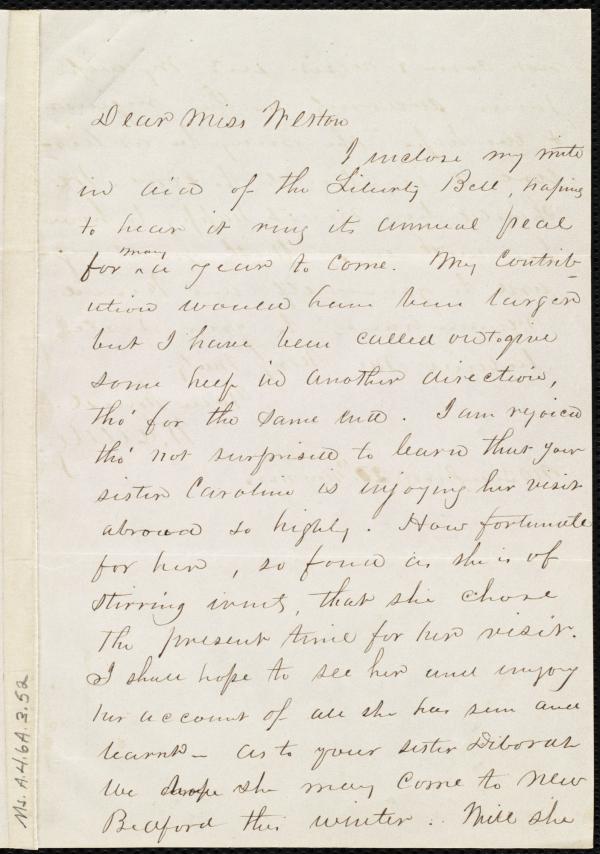 Dear Miss Weston
I inclose my mite
in aid of the Liberty Bell, hoping
to hear it ring its annual peal
for many a year to come. My contrib-
ution would have been larger
but I have been called on to give
some help in another direction,
tho' for the same end. I am rejoiced
tho' not surprised to learn that your
sister Caroline is enjoying her visit
abroad so highly. How fortunate
for her, so fond as she is of
stirring events, that she chose
the present time for her visit.
I shall hope to see her and enjoy
her account of all she has seen and
learnt - as to your sister Deborah
we hope she may come to New
Bedford this winter. Will she
Ms. A.4.6A.3.52